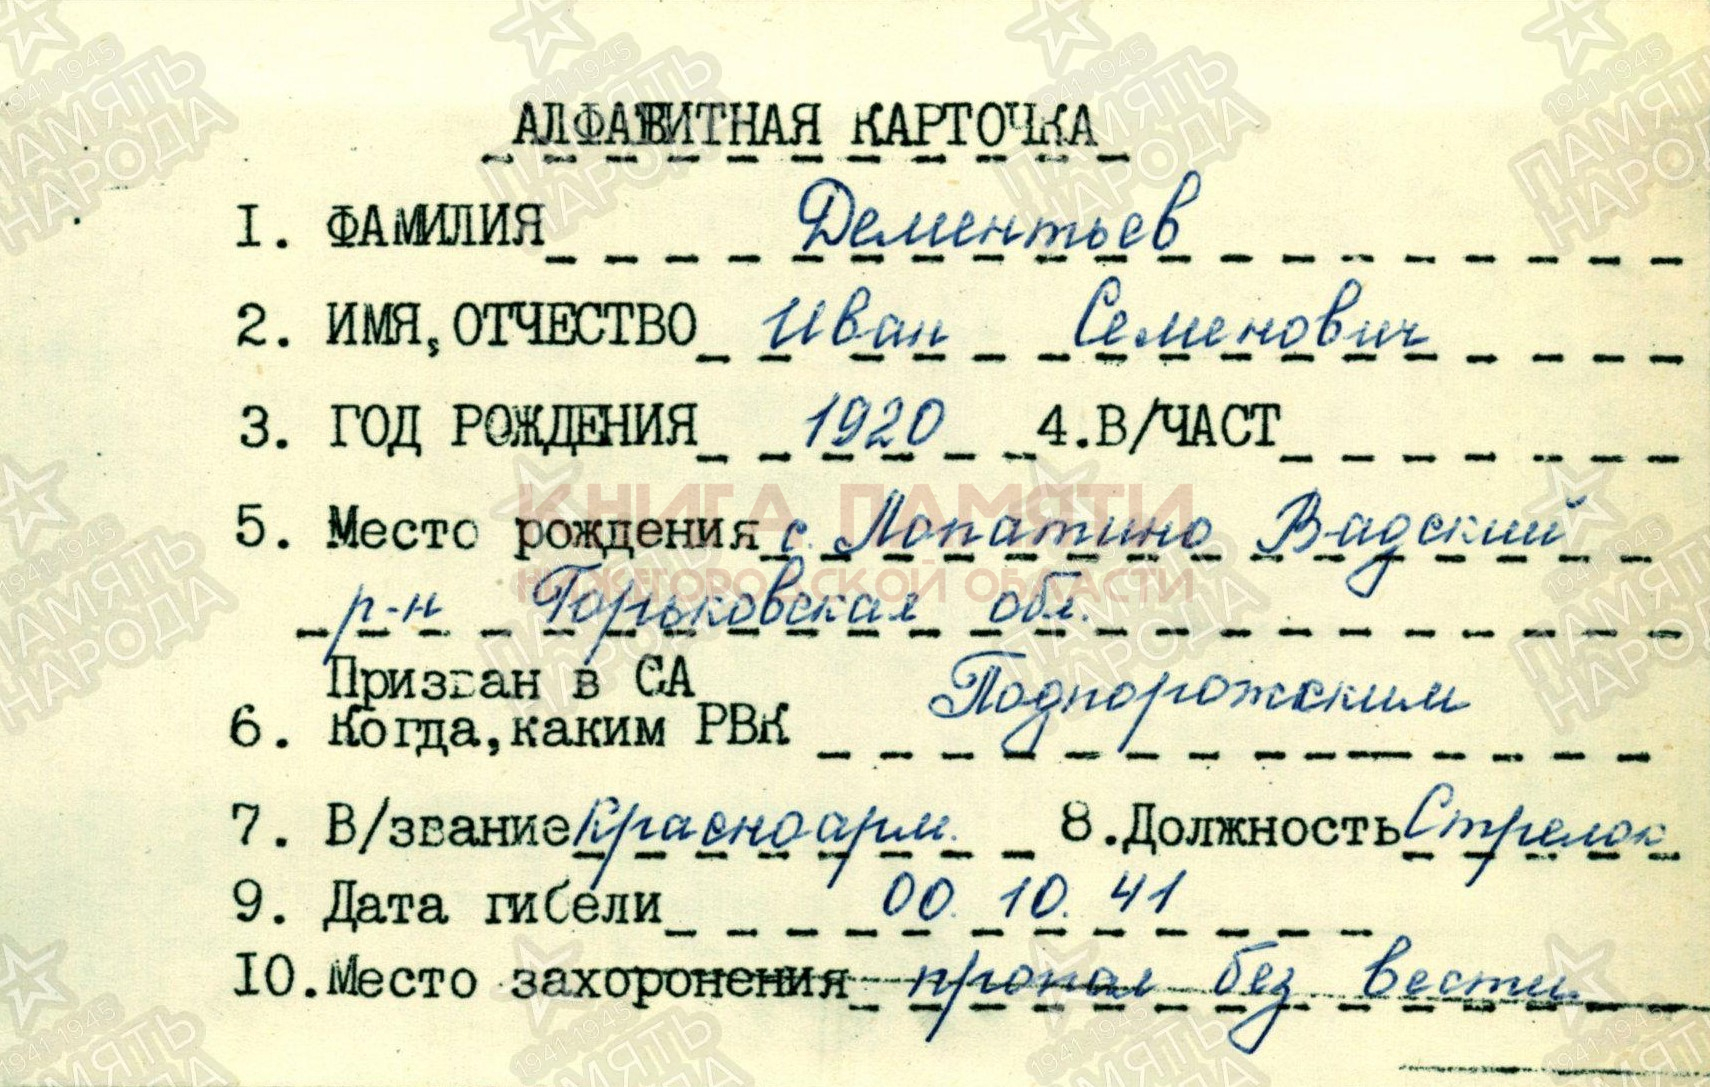 АЛФАВИТНАЯ КАРТОЧКА
I. ФАМИЛИЯ Дементьев
2. ИМЯ, ОТЧЕСТВО Иван Семенович
3. ГОД РОЖДЕНИЯ 1920 4. В/ЧАСТ
5. Место рождения с. Лопатино Вадский
р-н Горьковская обл.
Призван в СА
6. Когда, каким РВК Подпорожским
7. В/звание Красноарм. 8. Должность Стрелок
9. Дата гибели 00. 10. 41
10. Место захоронения пропал без вести
КНИГА ПАМЯТИ
НИЖЕГОРОДСКОЙ ОБЛАСТИ
1941-1945
ПАМЯТЬ
НАРОДА